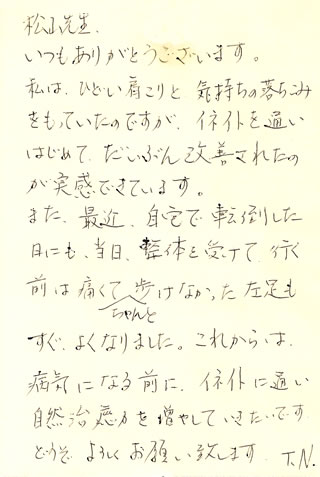 松山先生、
いつもありがとうございます。
私は、ひどい肩こりと気持ちの落ちこみ
をもっていたのですが、イネイトを通い
はじめて、だいぶん改善されたの
が実感できています。
また、最近、自宅で転倒した
日にも、当日、整体を受けて、行く
前は痛くてちゃんと歩けなかった左足も
すぐ、よくなりました。これからは、
病気になる前に、イネイトに通い
自然治癒力を増やしていきたいです
どうぞ よろしくお願い致します。 T.N.